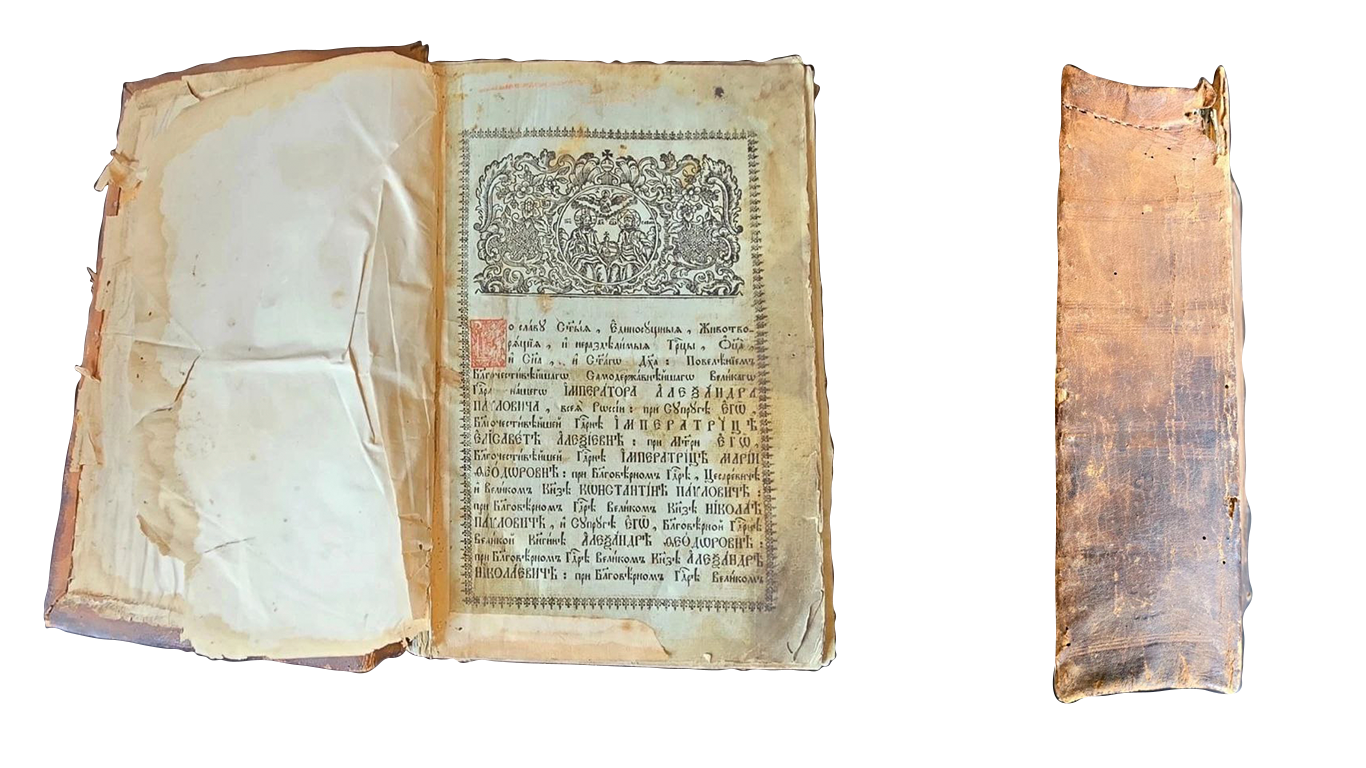 Во сла́вꙋ Ст҃ы́ѧ , Є҆диносꙋ́щныѧ , Животво-
рѧ́щїѧ , и҆ нераздѣ́лимыѧ Трⷪ҇цы , Ѻ҆ц҃а̀ ,
и҆ Сн҃а , и҆ Ст҃а́гѡ Дх҃а : Повелѣ́нїемъ
Бл҃гочести́вѣйшагѡ Самодержа́внѣйшагѡ Вели́кагѡ
Гдⷭ҇рѧ на́шегѡ І҆МПЕРА́ТОРА А҆ЛЕѮА́НДРА
ПА́ѴЛОВИЧА , всеѧ̀ Рѡссі́и : при Сꙋпрꙋ́гѣ Є҆ГѠ̀ ,
Бл҃гочести́вѣйшей Гдⷭ҇рнѣ І҆МПЕРАТРИ́ЦѢ
Є҆ЛІСАВЕ́ТѢ А҆ЛЕѮІ́ЕВНѢ : при Мт҃ри Є҆ГѠ̀ ,
Бл҃гочести́вѣйшей Гдⷭ҇рнѣ І҆МПЕРАТРИ́ЦѢ МАРІ́И
ѲЕО́ДѠРОВНѢ : при Бл҃говѣ́рномъ Гдⷭ҇рѣ , Цесаре́вичѣ
и҆ Вели́комъ Кнѧ́зѣ КѠНСТАНТІ́НѢ ПА́ѴЛОВИЧѢ :
при Бл҃говѣ́рномъ Гдⷭ҇рѣ Вели́комъ Кнѧ́зѣ НІКОЛА́Ѣ
ПА́ѴЛОВИЧѢ , и҆ Сꙋпрꙋ́гѣ Є҆ГѠ̀ , Бл҃говѣ́рной Гдⷭ҇рнѣ
Вели́кой Кнѧги́нѣ А҆ЛЕѮА́НДРѢ ѲЕО́ДѠРОВНѢ :
при Бл҃говѣ́рномъ Гдⷭ҇рѣ Вели́комъ Кнѧ́зѣ А҆ЛЕѮА́НДРѢ
НІКОЛА́ЕВИЧѢ : при Бл҃говѣ́рномъ Гдⷭ҇рѣ Вели́комъ